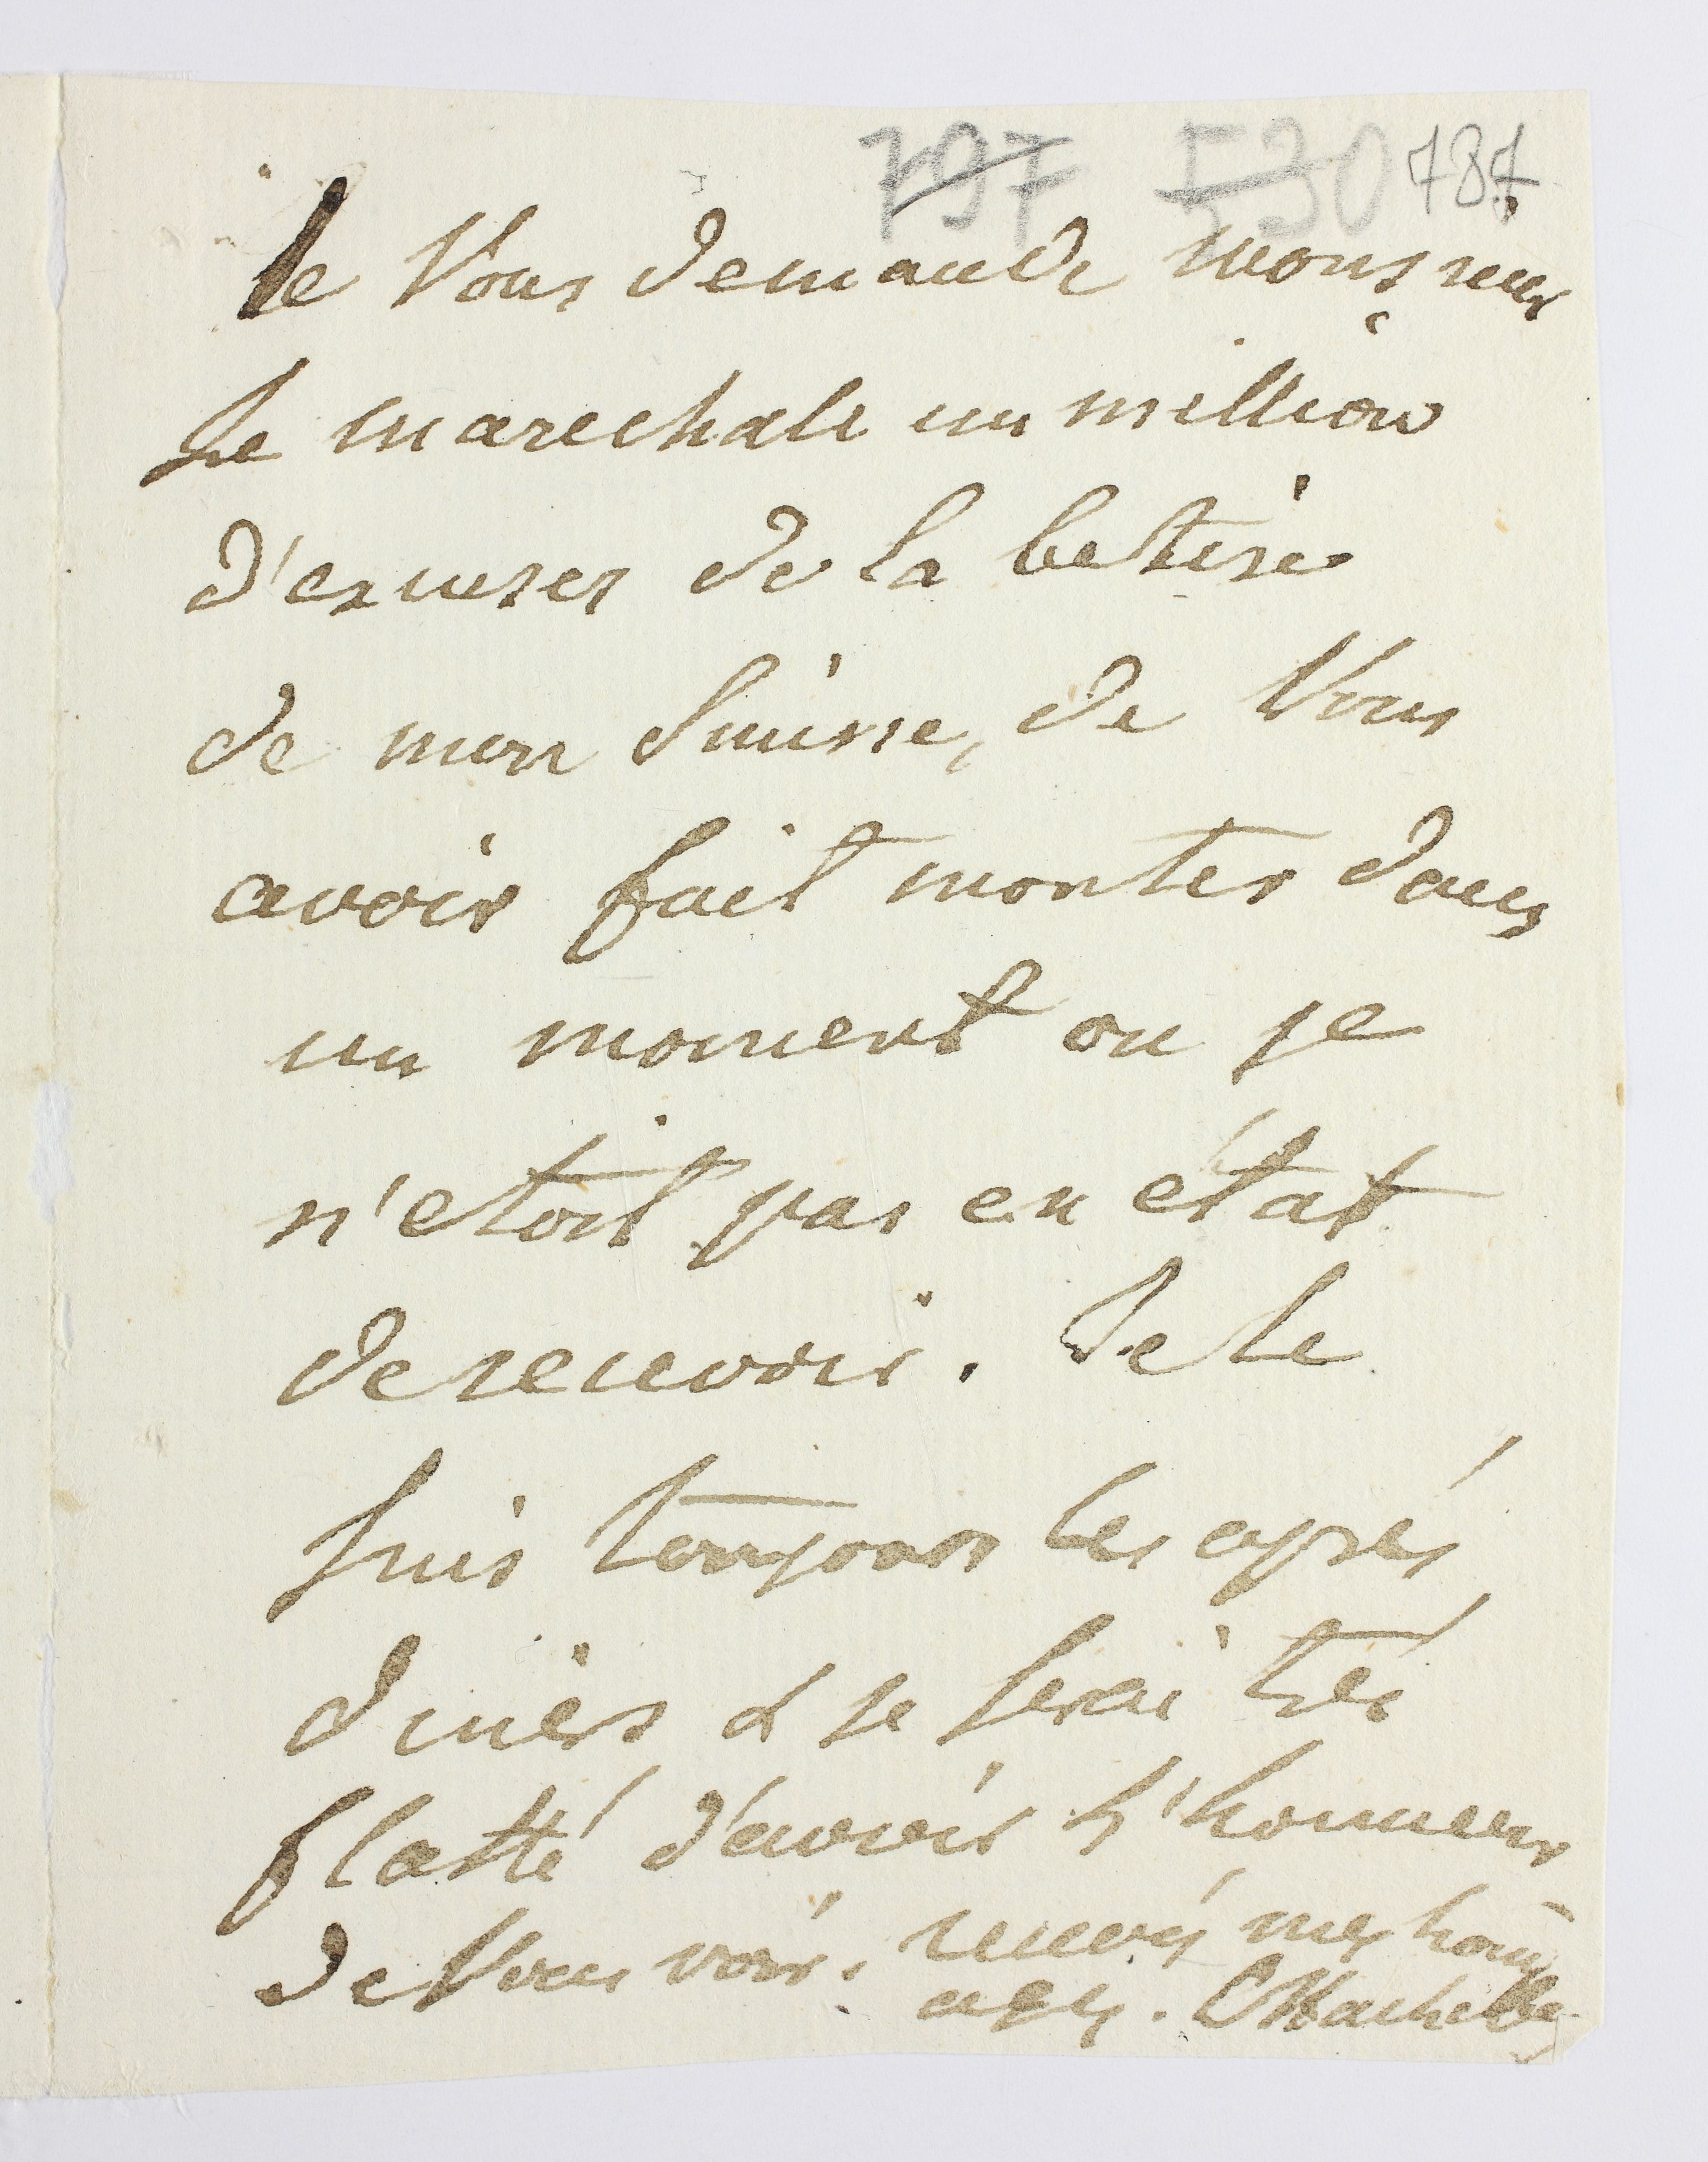 797 530 787
Je Vous demande monsieur
Le marechale un million
d'excuses de la betise
de mon Suisse, de Vous
avoir fait monter dans
un moment ou je
n'etoit pas en état
de recevoir. Je le
suis toujours les aprés
diners & je serai trés
flatté d'avoir L'honneur
de Vous voir. recevés mes hom
ages.